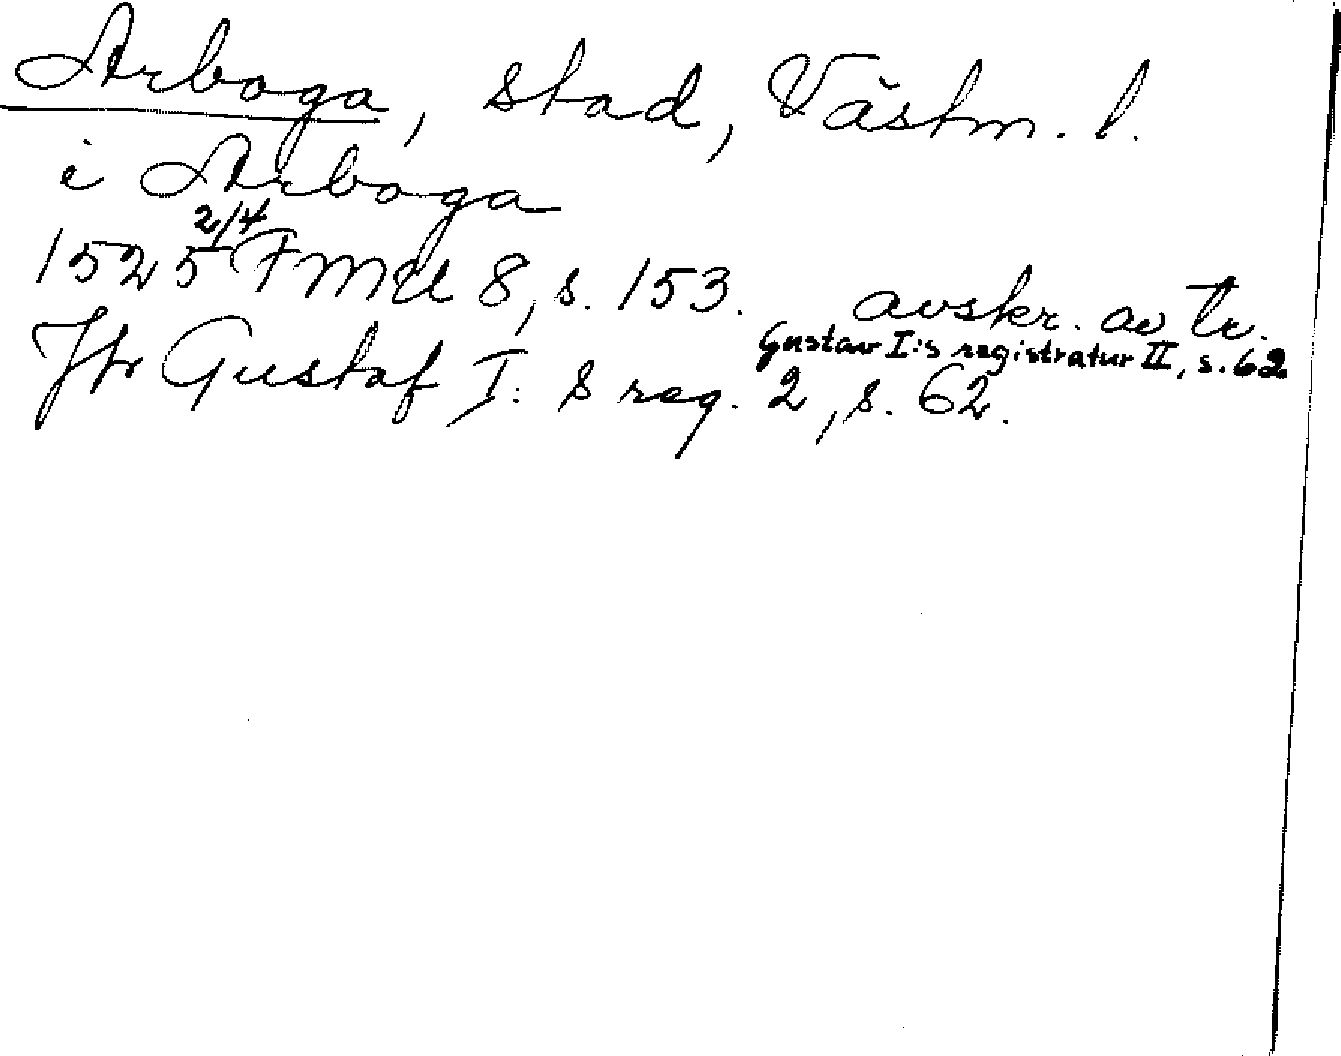 Arboga, stad, Västm. l.
i Arboga
2/4
1525 FMU 8, s. 153. avskr. av tr.
Gustav I:s registratur II, s. 62
Jfr Gustaf I: s reg. 2, s. 62.